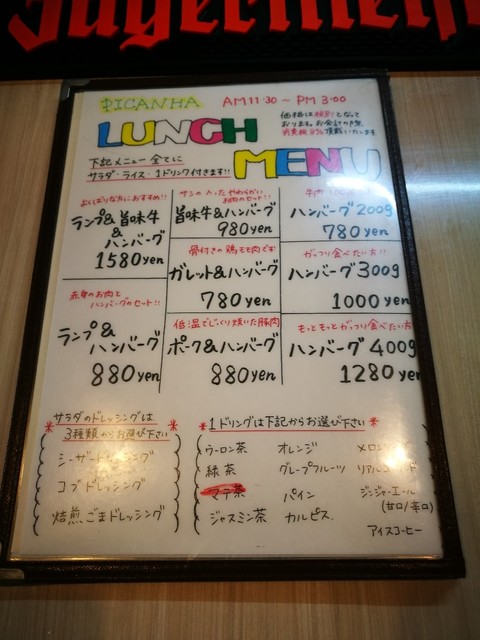 Jägermeister
PICANHA AM 11:30 ～ PM 3:00
LUNCH
MENU
価格は税別となって
おります。お会計のさい
消費税8%頂戴いたします
下記メニュー全てに
サラダ・ライス・1ドリンク付きます!!
よくばりな方におすすめ!!
ランプ&旨味牛
&
ハンバーグ
1580yen
赤身のお肉と
ハンバーグのセット!!
ランプ&
ハンバーグ
880yen
サシの入った やわらかい
お肉のセット!!
旨味牛&ハンバーグ
980yen
骨付きの鶏モモ肉です
ガレット&ハンバーグ
780yen
低温でじっくり焼いた豚肉
ポーク&ハンバーグ
880yen
ハンバーグ200g
780yen
がっつり食べたい方!!
ハンバーグ300g
1000yen
もっともっとがっつり食べたい方
ハンバーグ400g
1280yen
*サラダのドレッシングは*
3種類からお選び下さい
シーザードレッシング
コブドレッシング
焙煎ごまドレッシング
*1ドリンクは下記からお選び下さい*
ウーロン茶 オレンジ メロン
緑茶 グレープフルーツ リアルゴールド
マテ茶 パイン ジンジャーエール
(甘口/辛口)
ジャスミン茶 カルピス
アイスコーヒー